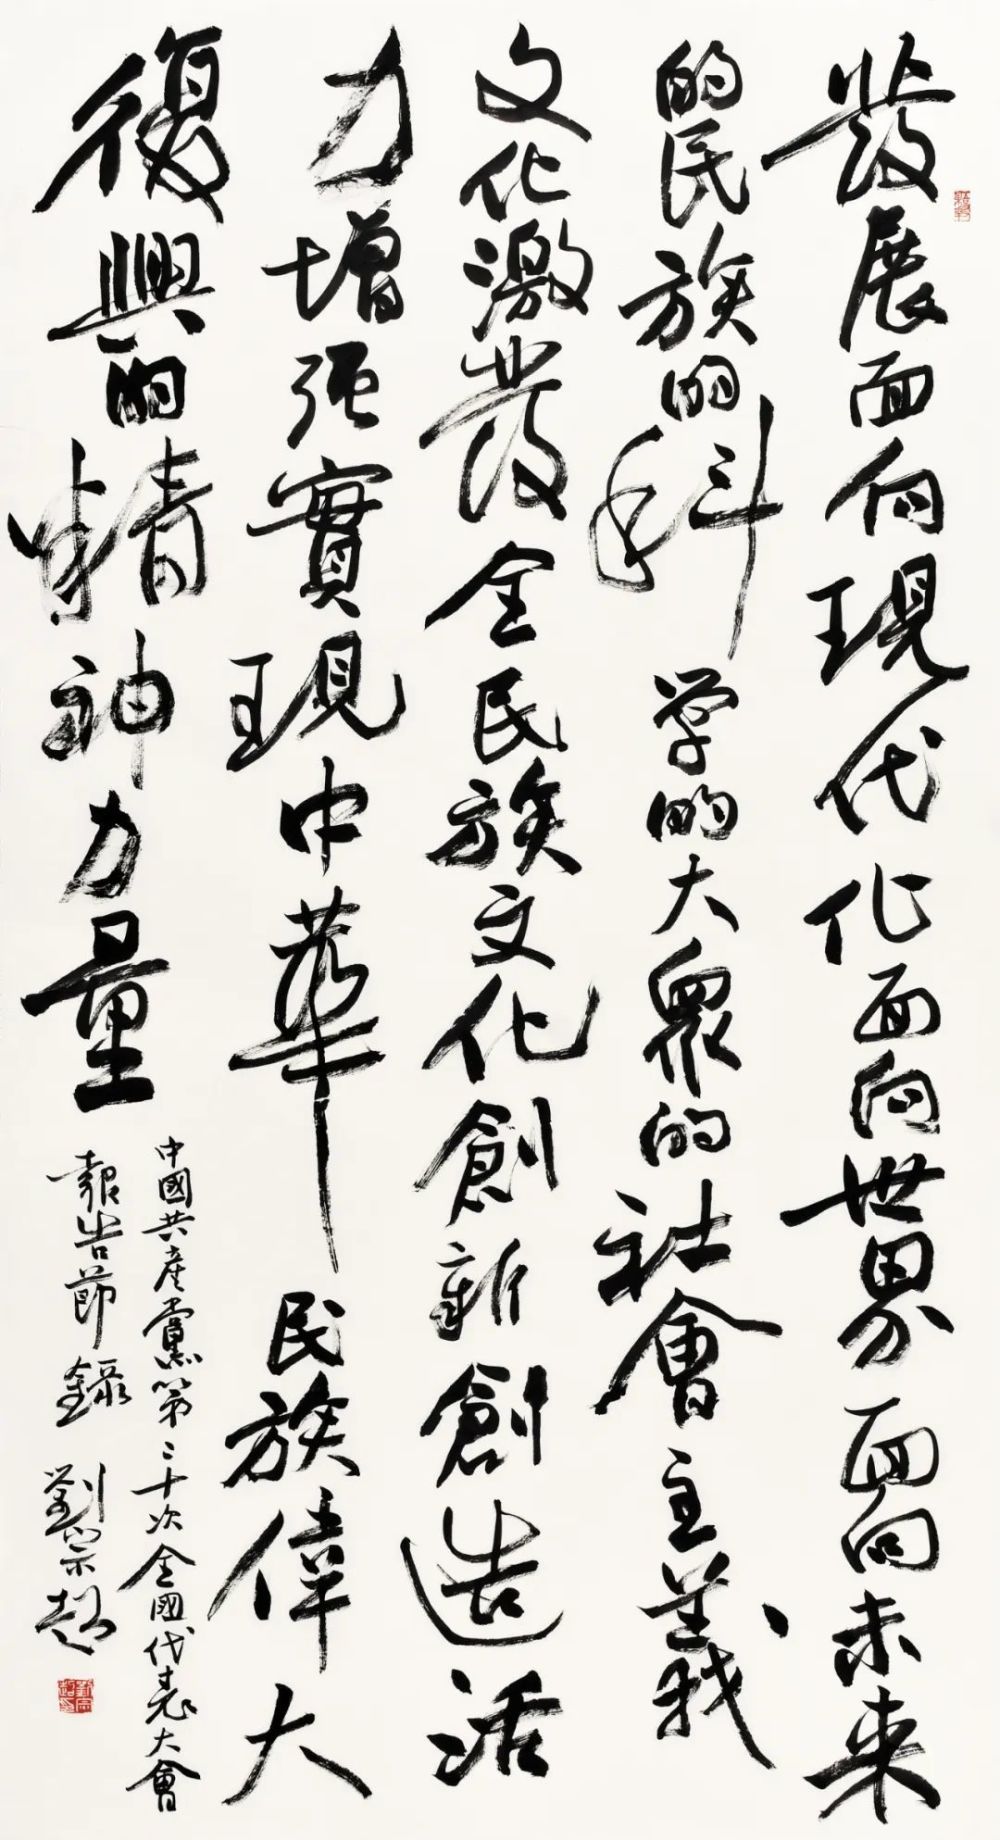 發展面向現代化面向世界面向未来
的民族的科学的大眾的社會主義
文化激發全民族文化創新創造活
力增强實現中華民族偉大
復興的精神力量
中國共産黨第二十次全國代表大會
報告節錄 劉宗超